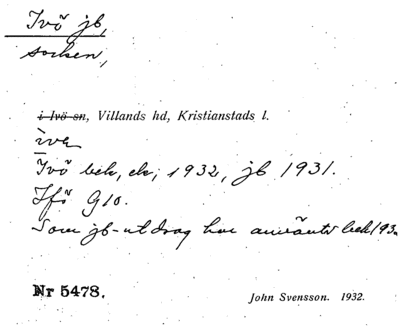 Ivö jb,
socken,
i Ivö sn, Villands hd, Kristianstads l.
ìve
Ivö bek, ek, 1932, jb 1931.
Ifö G10.
Som jb-utdrag har använts bek 193
Nr 5478.
John Svensson. 1932.